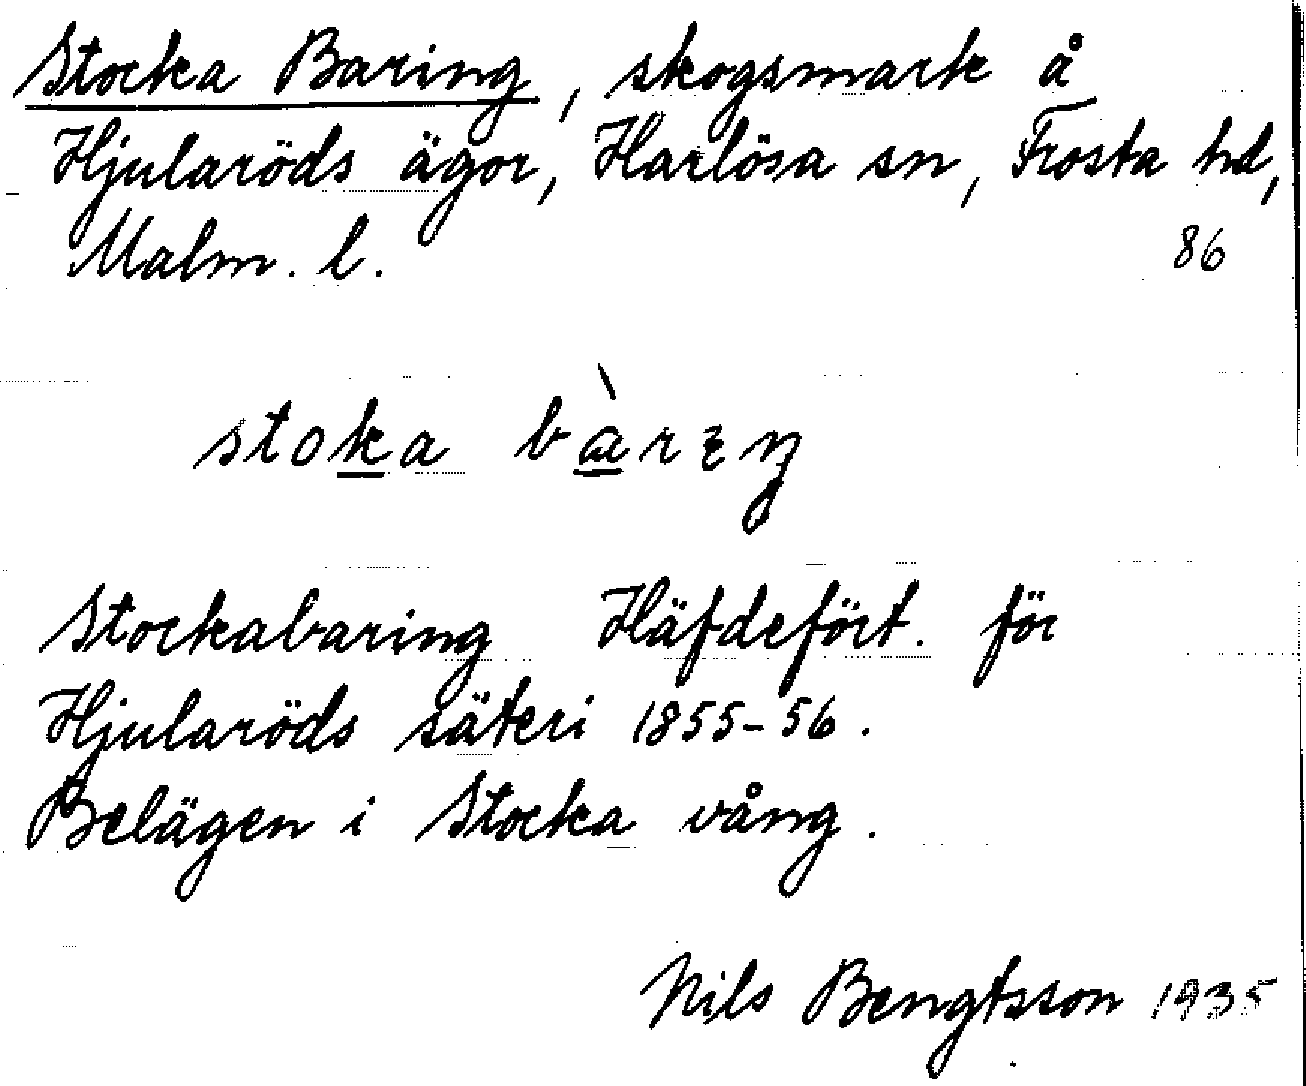 Stocka Baring, skogsmark å
Hjularöds ägor, Harlösa sn, Frosta hd,
Malm. l. 86
stoka bàrɪŋ
Stockabaring Häfdefört. för
Hjularöds säteri 1855-56.
Belägen i Stocka vång.
Nils Bengtsson 1935